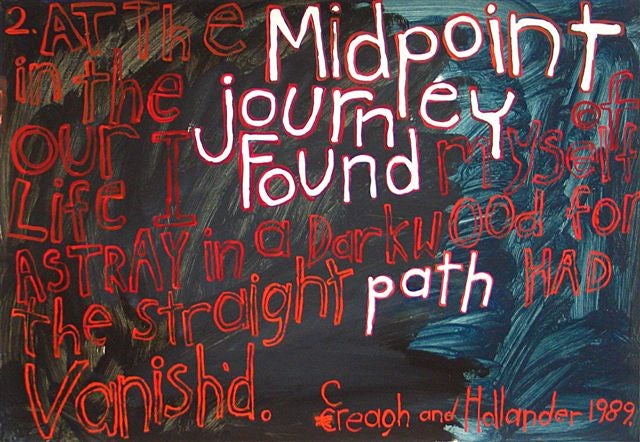 2. AT The Midpoint
in the journey of
our
Life I Found myself
ASTRAY in a DarkwOOd for
the straight path HAD
Vanish'd.
Creagh and Hollander 1989.